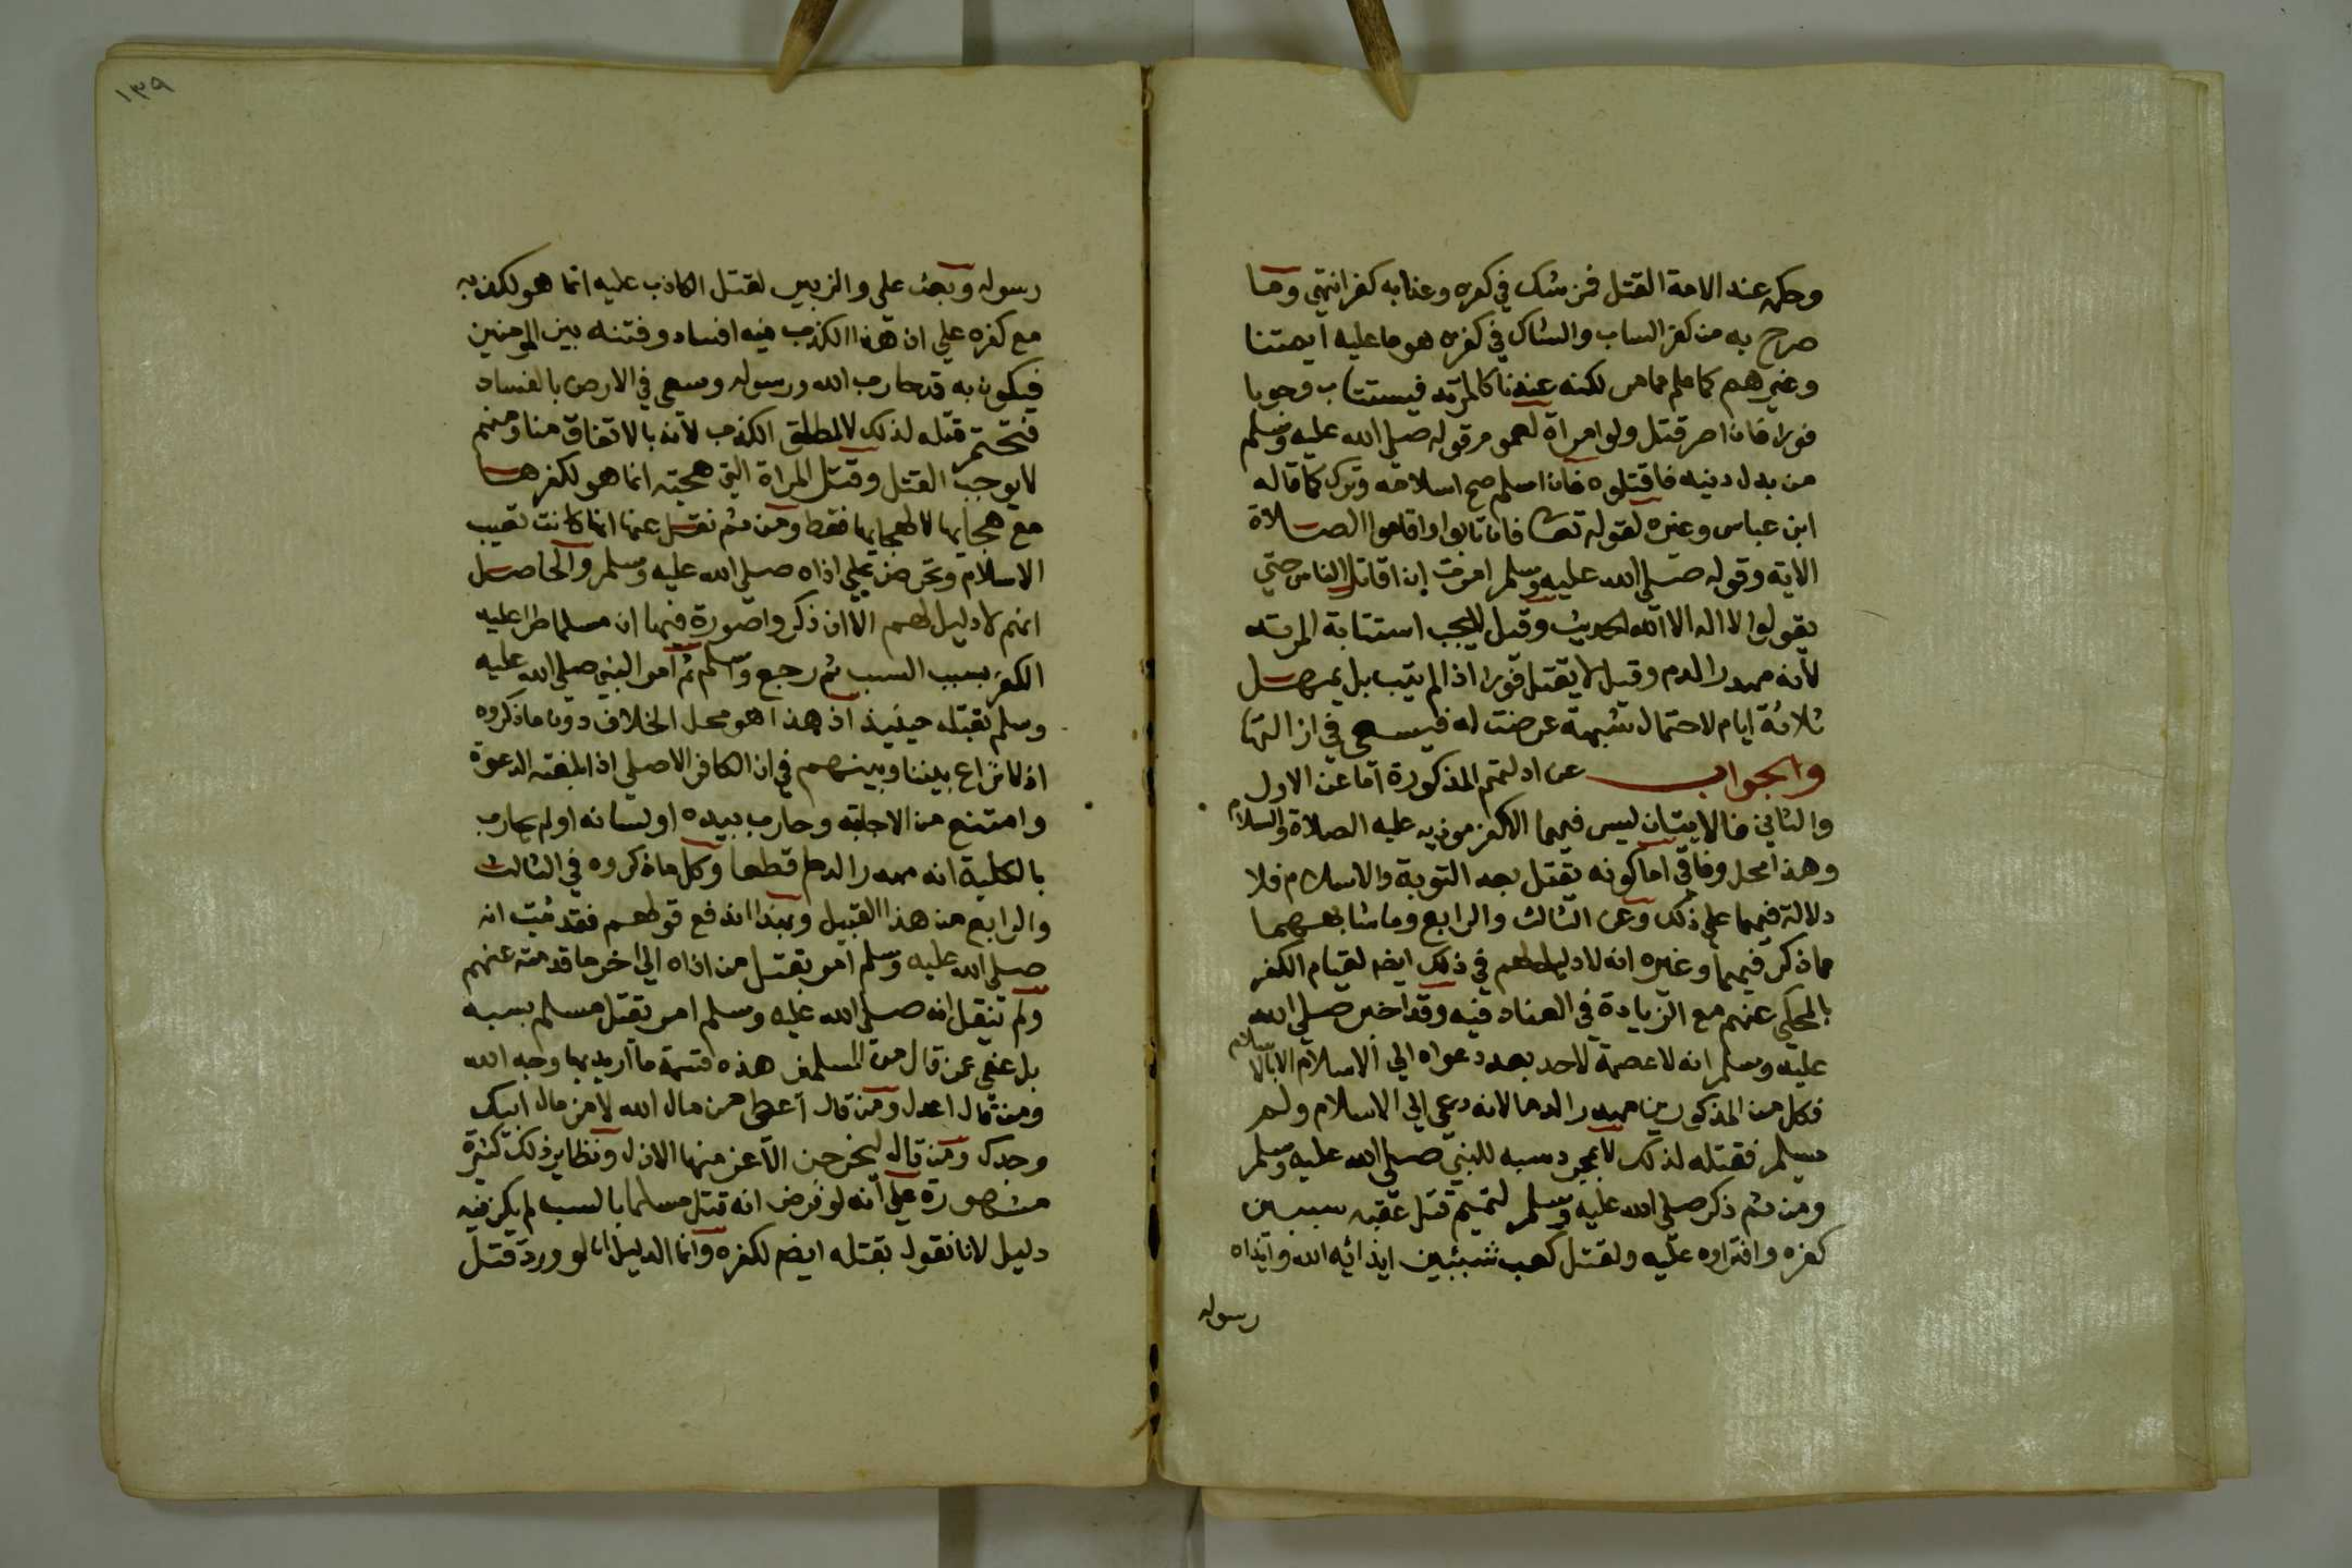 وحكمه عند الامة القتل فمن شك في كفره وعذابه كفر انتهي وما
صرح به من كفر الساب والشاك في كفره هو ما عليه ايمتنا
وغيرهم كما علم مما مر لكنه عندنا كالمرتد فيستتاب وجوبا
فورا فان اصر قتل ولو امراة لعموم قوله صلي الله عليه وسلم
من بدل دينه فاقتلوه فان اسلم صح اسلامه وترك كما قاله
ابن عباس وغيره لقوله تعا فان تابوا واقاموا الصلاة
الاية وقوله صلي الله عليه وسلم امرت ان اقاتل الناس حتي
يقولوا لا اله الا الله الحديث وقيل لا يجب استتابة المرتد
لانه مهدر الدم وقيل لا يقتل فورا اذا لم يتب بل يمهل
ثلاثة ايام لاحتمال شبهة عرضت له فيسعي في ازالتها
والجواب عن ادلتهم المذكورة اما عن الاول
والثاني فالايتان ليس فيهما الا كفر موذيه عليه الصلاة والسلام
وهذا محل وفاق اما كونه يقتل بعد التوبة والاسلام فلا
دلالة فيهما علي ذلك وعن الثالث والرابع وما شابههما
مما ذكر فيهما وغيره انه لا دليل لهم في ذلك ايضا لقيام الكفر
بالمحكي عنهم مع الزيادة في العناد فيه وقد اخبر صلي الله
عليه وسلم انه لا عصمة لاحد بعد دعواه الي الاسلام الا بالاسلام
فكل من المذكورين مهدر الدم لانه دعي الي الاسلام ولم
يسلم فقتله لذلك لا بمجرد سبه للنبي صلي الله عليه وسلم
ومن ثم ذكر صلي الله عليه وسلم لتحتيم قتل عقبه سببين
كفره وافتراوه عليه ولقتل كعب شيئين ايذائه الله وايذاه
رسوله
١٣٩
رسوله وبعث علي والزبير لقتل الكاذب عليه انما هو لكذبه
مع كفره علي ان هذا الكذب فيه افساد وفتنه بين المومنين
فيكون به قد حارب الله ورسوله وسعي في الارض بالفساد
فتحتم قتله لذلك لا لمطلق الكذب لانه بالاتفاق منا ومنهم
لا يوجب القتل وقتل المراة التي هجته انما هو لكفرها
مع هجايها لا لهجايها فقط ومن ثم نقل عنها انها كانت تعيب
الاسلام وتحرض علي اذاه صلي الله عليه وسلم والحاصل
انهم لا دليل لهم الا ان ذكروا صورة فيها ان مسلما طرا عليه
الكفر بسبب السب ثم رجع واسلم ثم امر النبي صلي الله عليه
وسلم بقتله حينيذ اذ هذا هو محل الخلاف دون ما ذكروه
اذ لا نزاع بيننا وبينهم في ان الكافر الاصلي اذا بلغته الدعوة
وامتنع من الاجابة وحارب بيده او لسانه او لم يحارب
بالكلية انه مهدر الدم قطعا وكل ما ذكروه في الثالث
والرابع من هذا القبيل وبهذا اندفع قولهم فقد ثبت انه
صلي الله عليه وسلم امر بقتل من اذاه الي اخر ما قدمته عنهم
ولم ينقل انه صلي الله عليه وسلم امر بقتل مسلم بسبه
بل عفي عن قال من المسلمين هذه قسمة ما اريد بها وجه الله
ومن قال اعدل ومن قال اعطي من مال الله لا من مال ابيك
وجدك ومن قال ليخرجن الاعز منها الاذل ونظاير ذلك كثيرة
مشهورة علي انه لو فرض انه قتل مسلما بالسب لم يكن فيه
دليل لانا نقول بقتله ايضا لكفره وانما الدليل ان لو ورد قتل